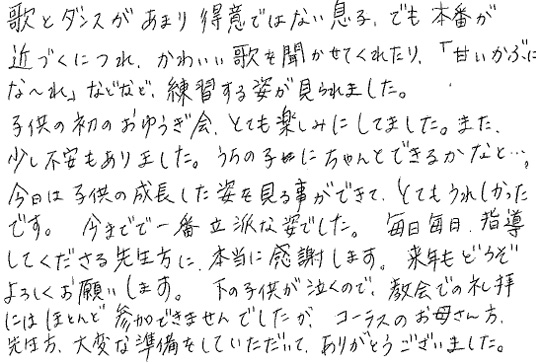 歌とダンスがあまり得意ではない息子、でも本番が
近づくにつれ、かわいい歌を聞かせてくれたり、「甘いかぶに
な〜れ」などなど、練習する姿が見られました。
子供の初のおゆうぎ会、とても楽しみにしてました。また、
少し不安もありました。うちの子はちゃんとできるかなと…。
今日は子供の成長した姿を見る事ができて、とてもうれしかった
です。 今までで一番立派な姿でした。 毎日毎日、指導
してくださる先生方に、本当に感謝します。 来年もどうぞ
よろしくお願いします。 下の子供が泣くので、教会での礼拝
にはほとんど参加できませんでしたが、コーラスのお母さん方、
先生方、大変な準備をしていただいて、ありがとうございました。